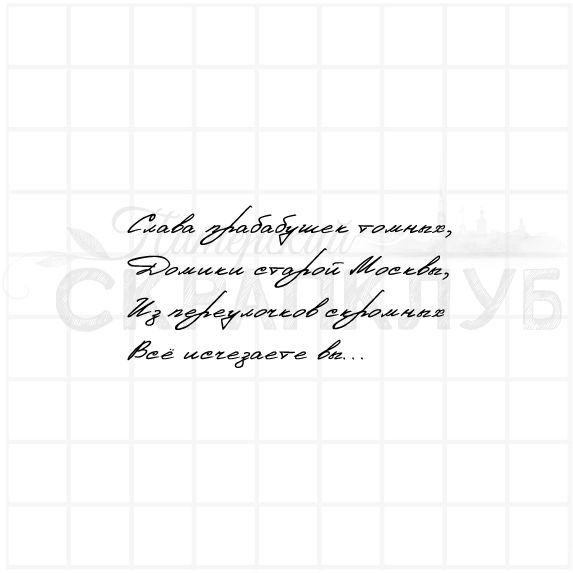 Слава прабабушек томных,
Домики старой Москвы,
Из переулочков скромных
Всё исчезаете вы...
Питерский
СКРАПКЛУБ